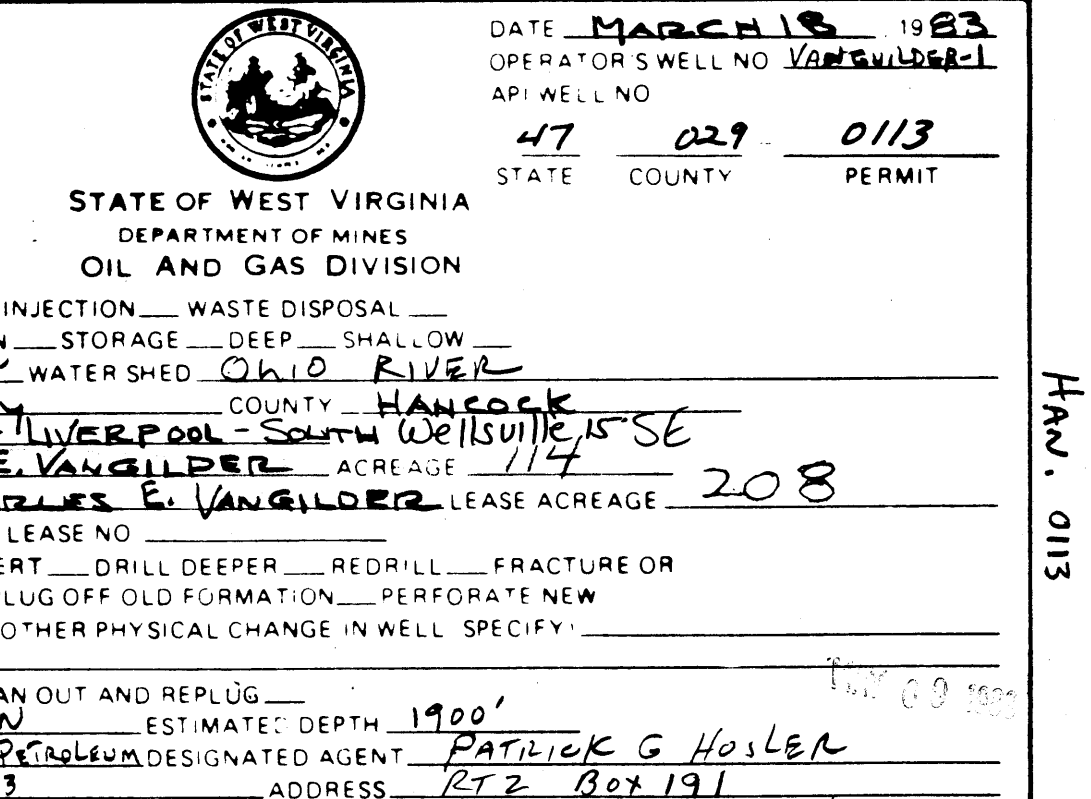 STATE OF WEST VIRGINIA
DATE MARCH 18 1983
OPERATOR'S WELL NO VANGUILDER-1
API WELL NO
47 029 - 0113
STATE COUNTY PERMIT
STATE OF WEST VIRGINIA
DEPARTMENT OF MINES
OIL AND GAS DIVISION
INJECTION WASTE DISPOSAL
STORAGE DEEP SHALLOW
WATER SHED OhIO RIVER
COUNTY HANCOCK
LIVERPOOL - SOUTH Wellsville, 15' SE
E. VANGILDER ACREAGE 114
RLES E. VANGILDER LEASE ACREAGE 208
LEASE NO
ERT DRILL DEEPER REDRILL FRACTURE OR
LUG OFF OLD FORMATION PERFORATE NEW
OTHER PHYSICAL CHANGE IN WELL SPECIFY
AN OUT AND REPLUG
N ESTIMATED DEPTH 1900'
PETROLEUM DESIGNATED AGENT PATRICK G HOSLER
3 ADDRESS RT 2 BOX 191
HAN. 0113